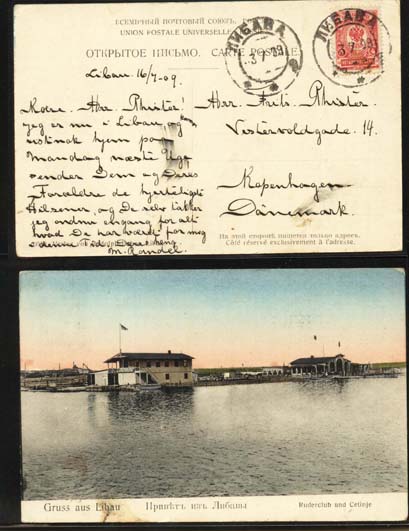 ВСЕМІРНЫЙ ПОЧТОВЫЙ СОЮЗЪ.
UNION POSTALE UNIVERSELLE
ОТКРЫТОЕ ПИСЬМО. CARTE POSTALE.
ЛИБАВА
3 7 09
ЛИБАВА
3 7 09
Libau 16/7-09.
Kære Hr. Phister!
jeg er nu i Libau, og
hjem paa
Mandag næste Uge
sender Dem og Deres
Forældre de hjerteligste
Hilsener, og De selv takker
jeg endnu engang for alt
hvad De har været for mig
Deres
M.
Herr Phister.
Vestervoldgade. 14.
Kopenhagen
Dänemark.
На этой сторонѣ пишется только адресъ.
Côté réservé exclusivement à l'adresse.
Gruss aus Libau
Привѣтъ изъ Либавы
Ruderclub und Cetinje